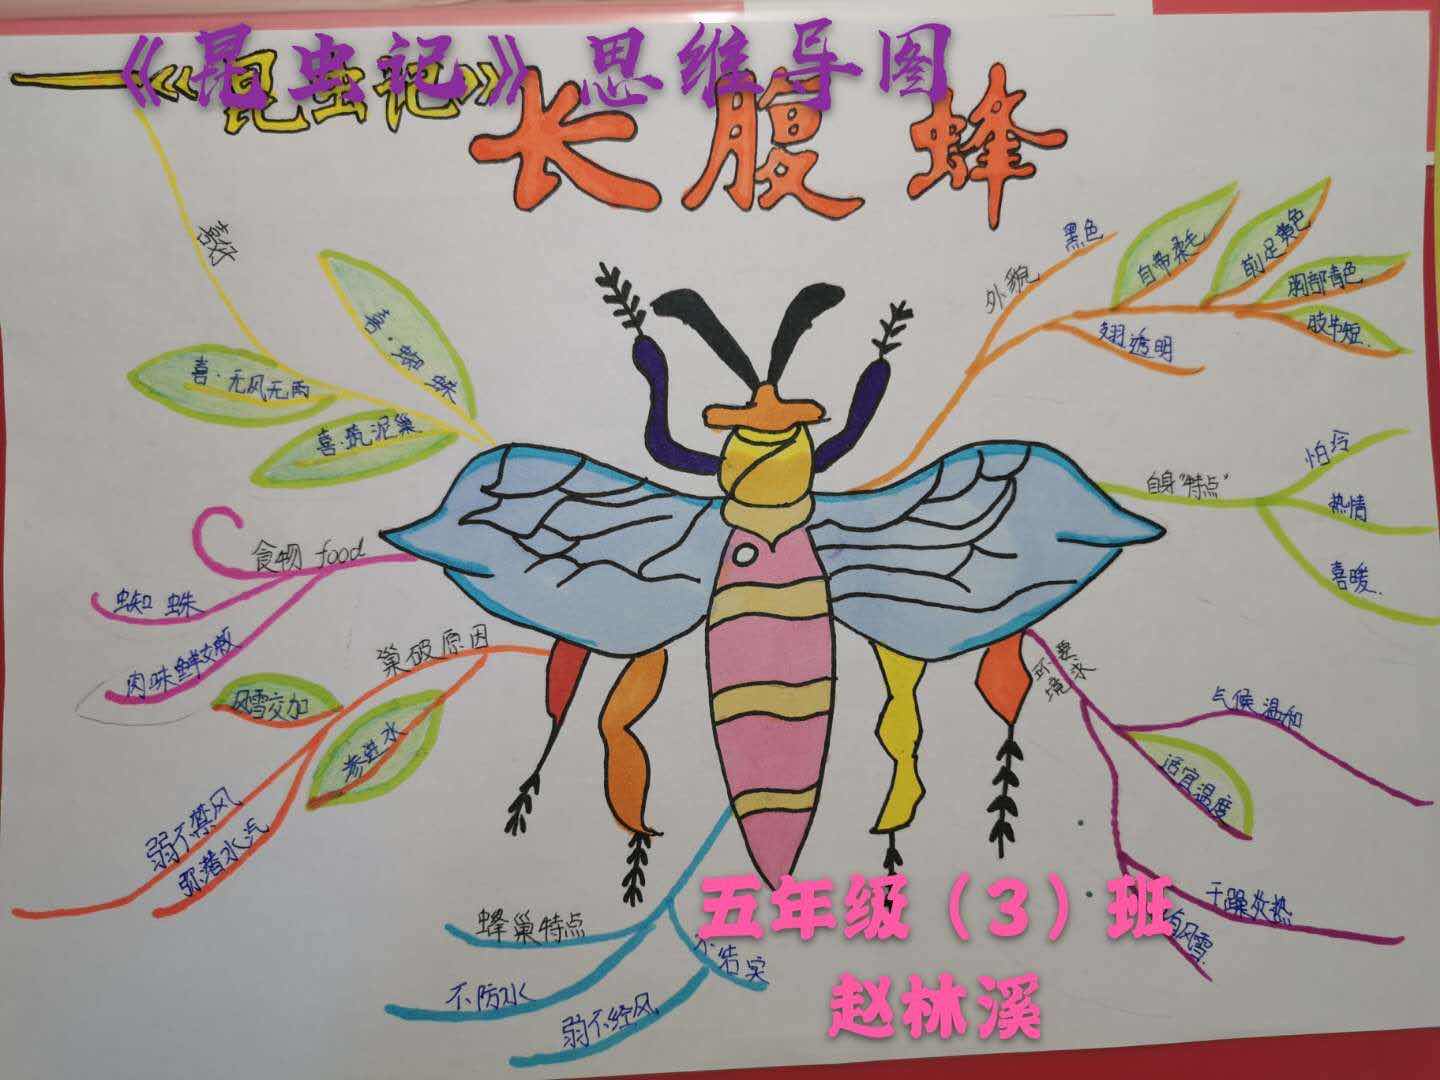 《昆虫记》思维导图
《昆虫记》
长腹蜂
喜好
喜·蜘蛛
喜·无风无雨
喜·筑泥巢
外貌
黑色
自带柔毛
前足黄色
胸部青色
肢节短.
翅透明
自身"特点"
怕冷
热情
喜暖.
食物 food
蜘蛛
肉味鲜
巢破原因
风雪交加
渗进水
弱不禁风
弥潜水汽
环境要求
气候温和
适宜温度
干躁炎热
风雪.
蜂巢特点
不防水
不结实
弱不经风
五年级（3）班
赵林溪